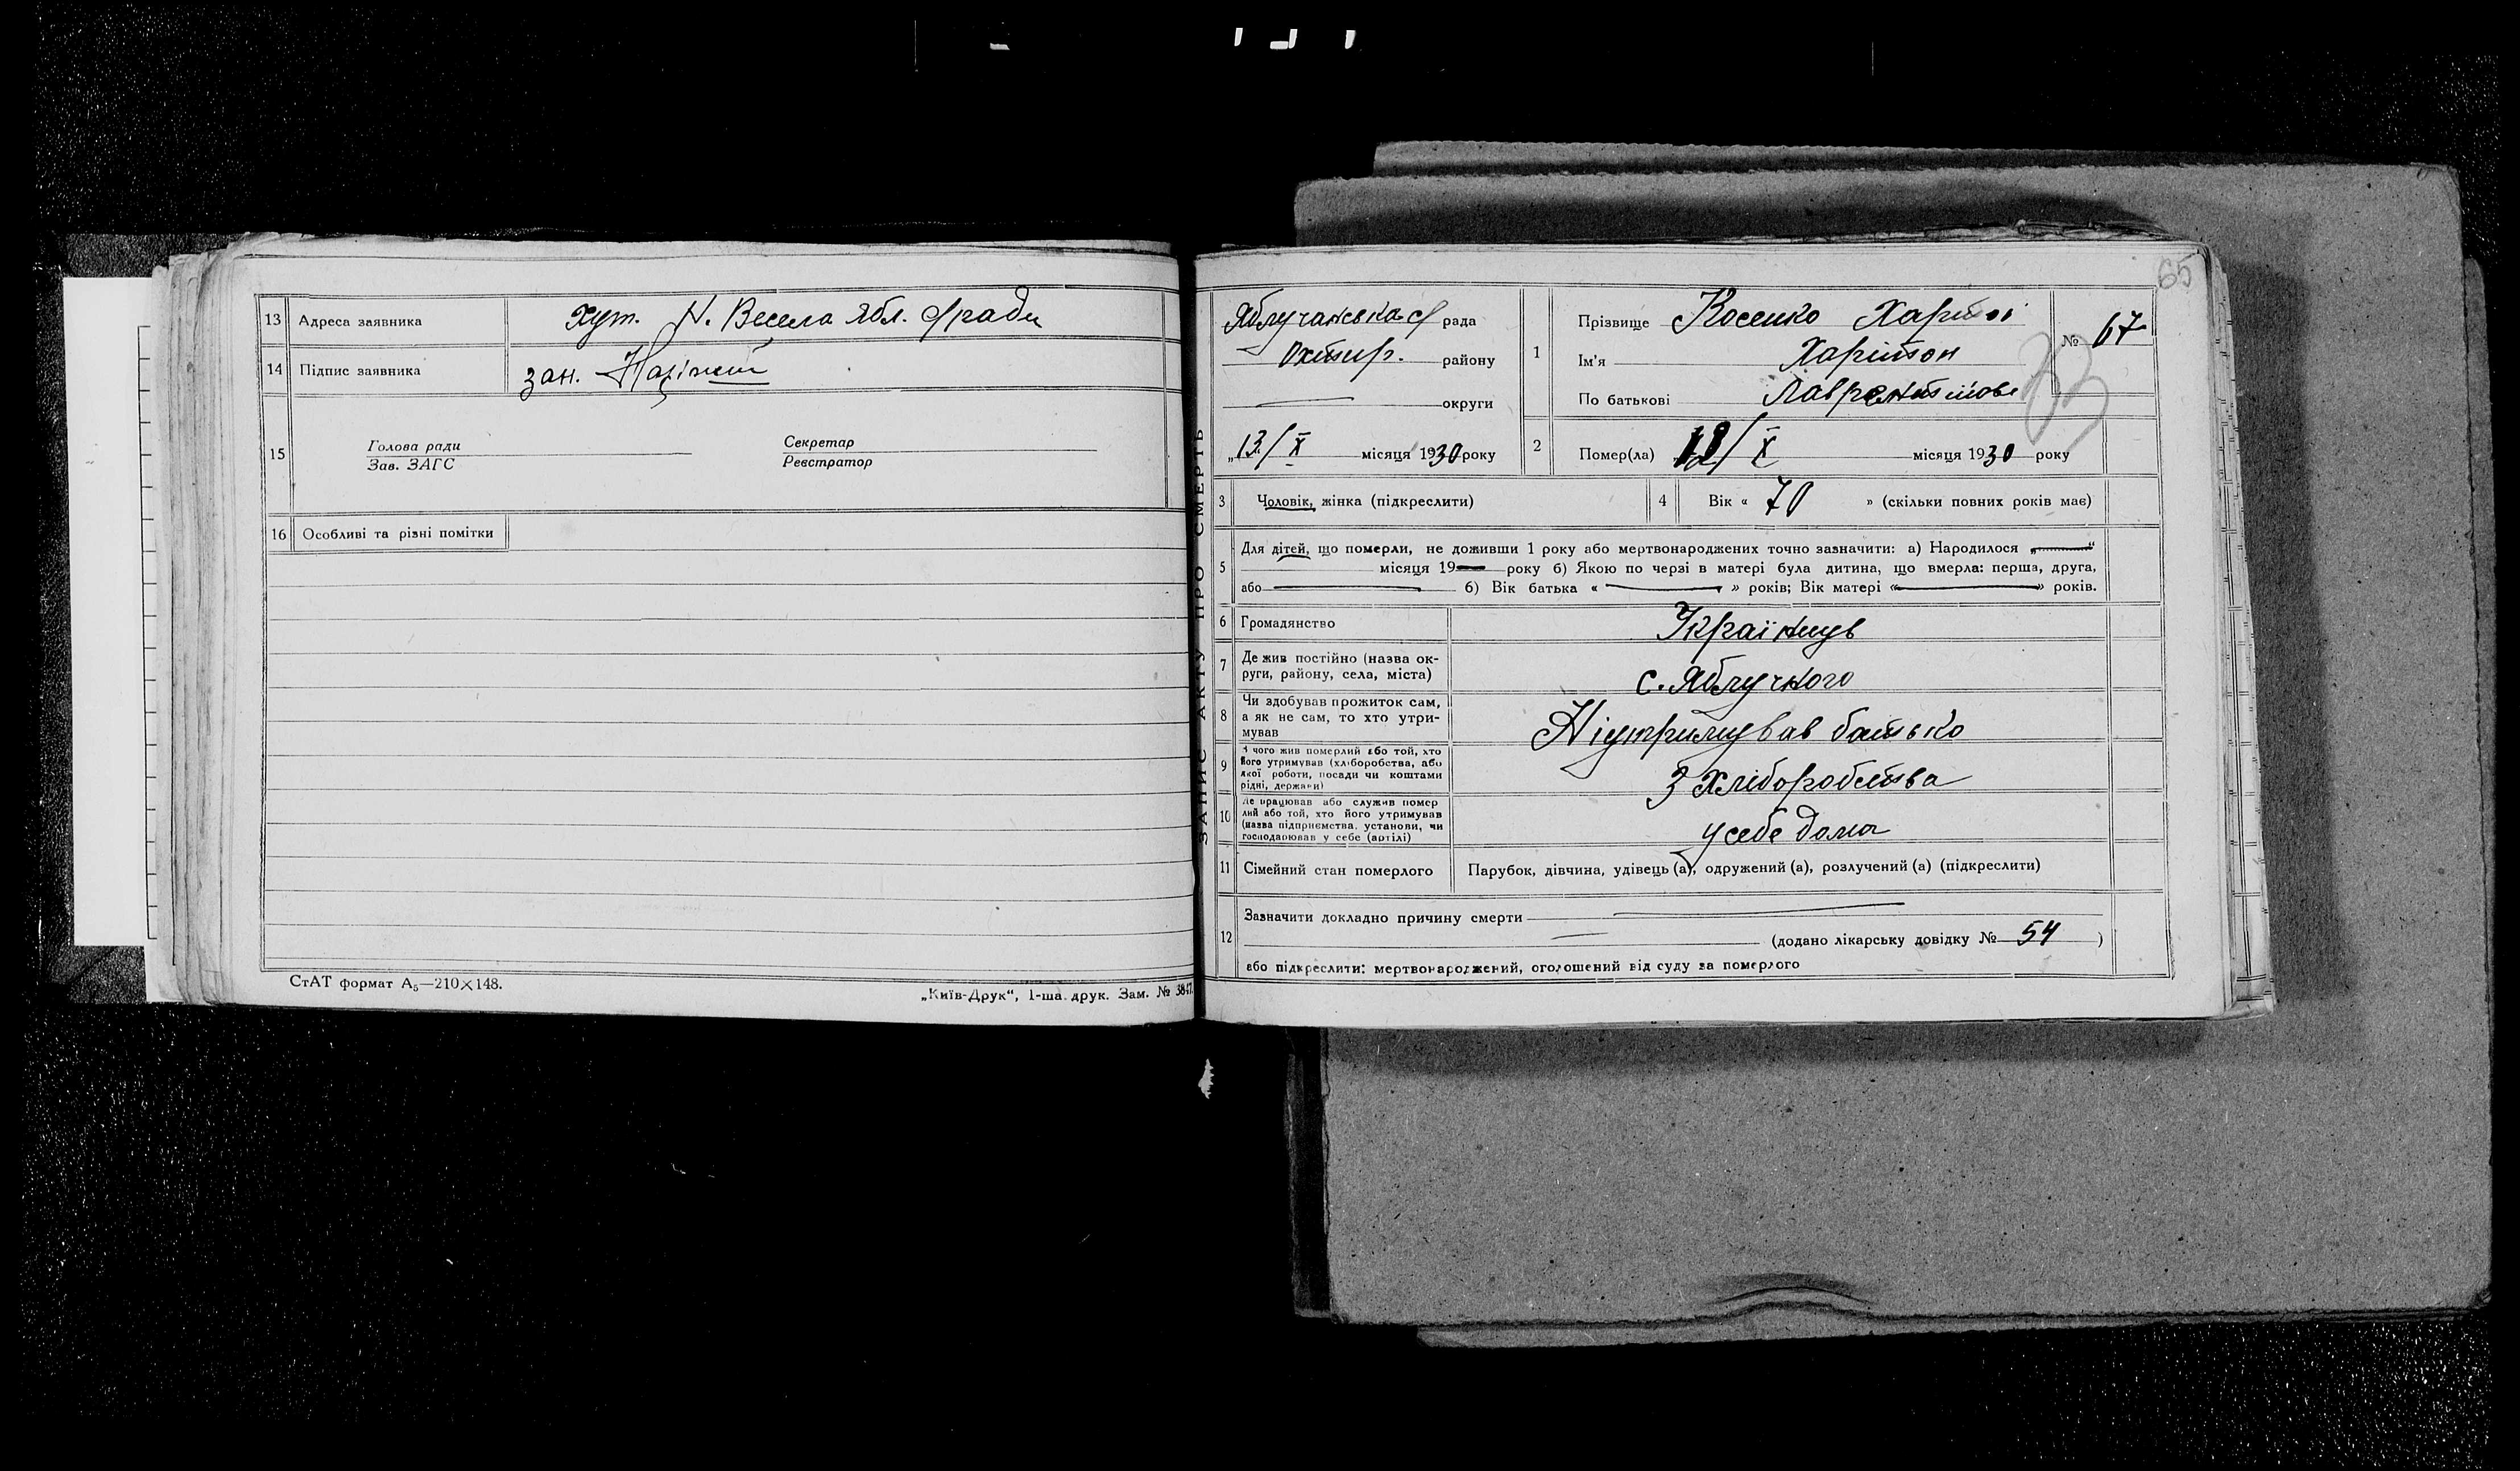 13 Адреса заявника хут. Н. Весела Ябл. с/ради
14 Підпис заявника зан.
15 Голова ради Секретар
Зав. ЗАГС Реєстратор
16 Особливі та різні помітки
СтАТ формат А₅—210×148.
„Київ-Друк“, 1-ша друк. Зам. № 3847.
ЗАПИС АКТУ ПРО СМЕРТЬ
65
Яблучанська с/рада
Охтир. району
округи
„13/X місяця 1930 року
1 Прізвище Косенко
Ім'я Харітон
По батькові
№ 67
33
2 Помер(ла) 12/X місяця 1930 року
3 Чоловік, жінка (підкреслити)
4 Вік « 70 » (скільки повних років має)
5 Для дітей, що померли, не доживши 1 року або мертвонароджених точно зазначити: а) Народилося „ “
місяця 19 року б) Якою по черзі в матері була дитина, що вмерла: перша, друга,
або б) Вік батька « » років; Вік матері « » років.
6 Громадянство Українцув
7 Де жив постійно (назва ок-
руги, району, села, міста) с. Яблучного
8 Чи здобував прожиток сам,
а як не сам, то хто утри-
мував Ні утримував батько
9 З чого жив померлий або той, хто
його утримував (хліборобства, або
якої роботи, посади чи коштами
рідні, держави) З хліборобства
10 Де працював або служив помер
лий або той, хто його утримував
(назва підприємства, установи, чи
господарював у себе (артілі) у себе дома
11 Сімейний стан померлого Парубок, дівчина, удівець (а), одружений (а), розлучений (а) (підкреслити)
12 Зазначити докладно причину смерти
(додано лікарську довідку № 54 )
або підкреслити: мертвонароджений, оголошений від суду за померлого